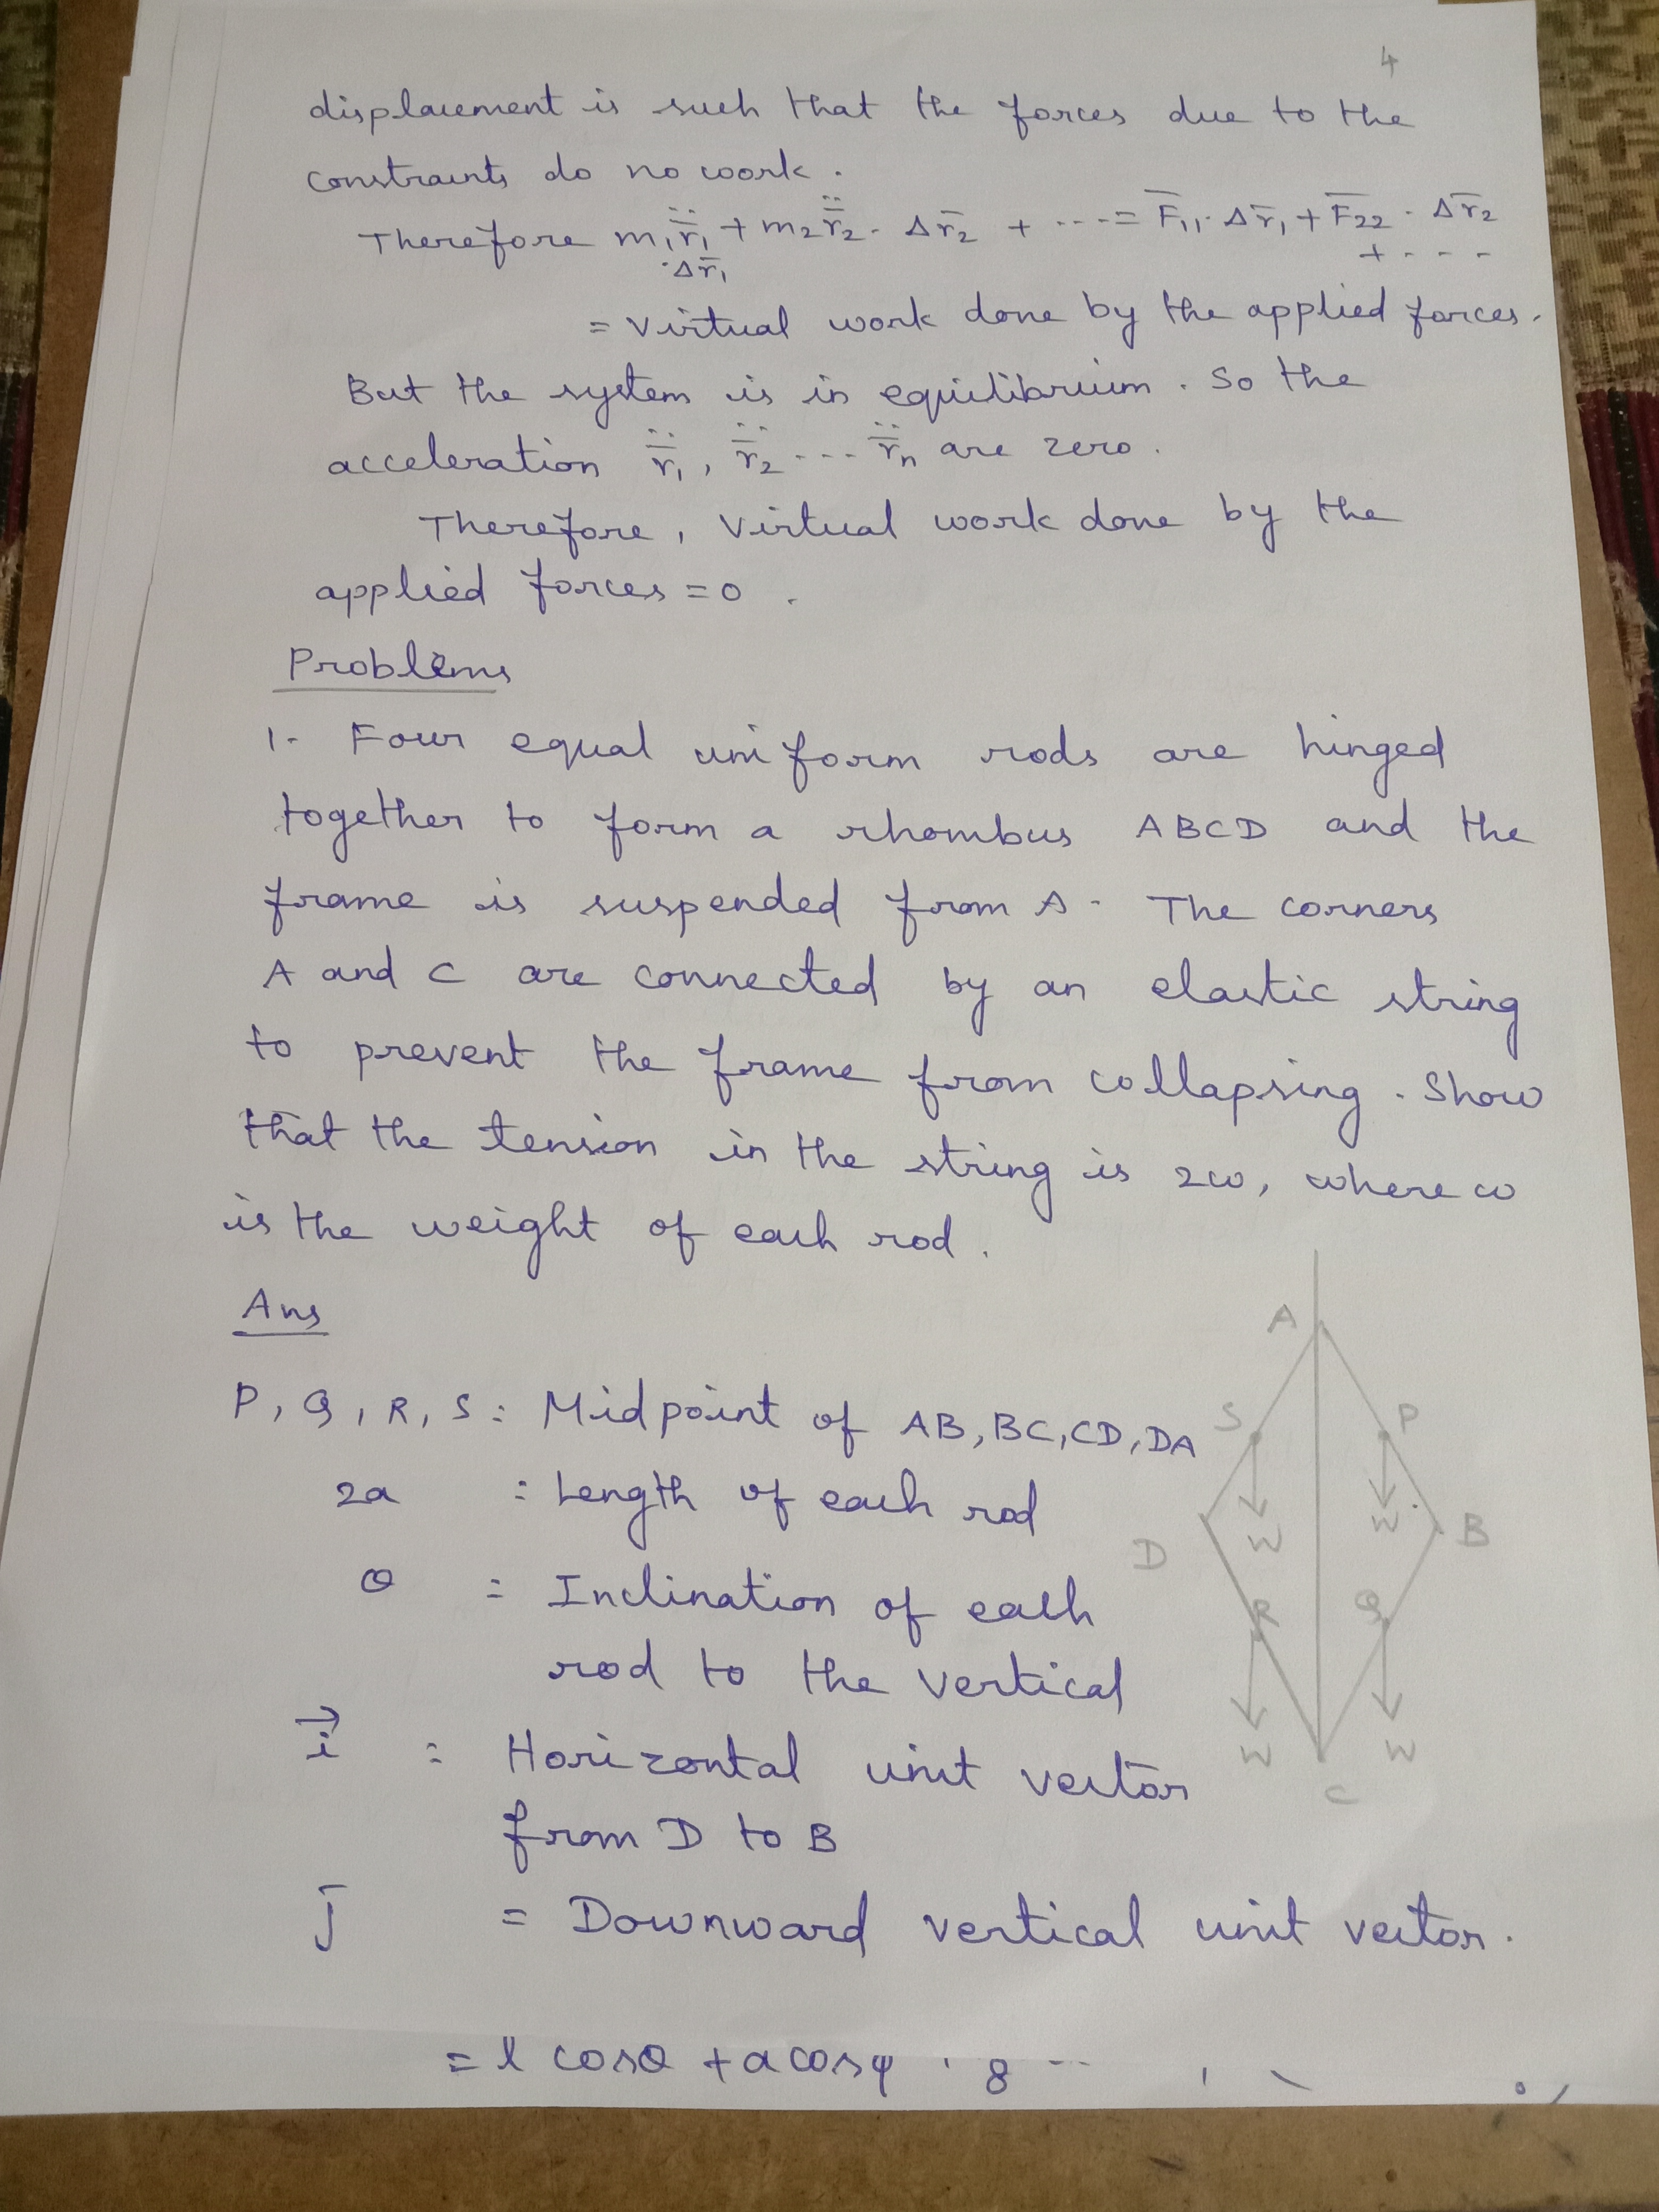 4
displacement is such that the forces due to the
constraints do no work.
Therefore m₁r̄̈₁ + m₂r̄̈₂ · Δr̄₂ + ---- = F̄₁₁ · Δr̄₁ + F̄₂₂ · Δr̄₂
·Δr̄₁ + - - -
= Virtual work done by the applied forces.
But the system is in equilibrium. So the
acceleration r̄̈₁, r̄̈₂ --- r̄̈n are zero.
Therefore, Virtual work done by the
applied forces = 0.
Problems
1. Four equal uniform rods are hinged
together to form a rhombus ABCD and the
frame is suspended from A. The corners
A and C are connected by an elastic string
to prevent the frame from collapsing. Show
that the tension in the string is 2w, where w
is the weight of each rod.
Ans
P, Q, R, S : Midpoint of AB, BC, CD, DA
2a : Length of each rod
θ = Inclination of each
rod to the vertical
i⃗ : Horizontal unit vector
from D to B
j̄ = Downward vertical unit vector.
A
S P
W W
D B
R Q
W W
C
= l cosθ + a cosφ